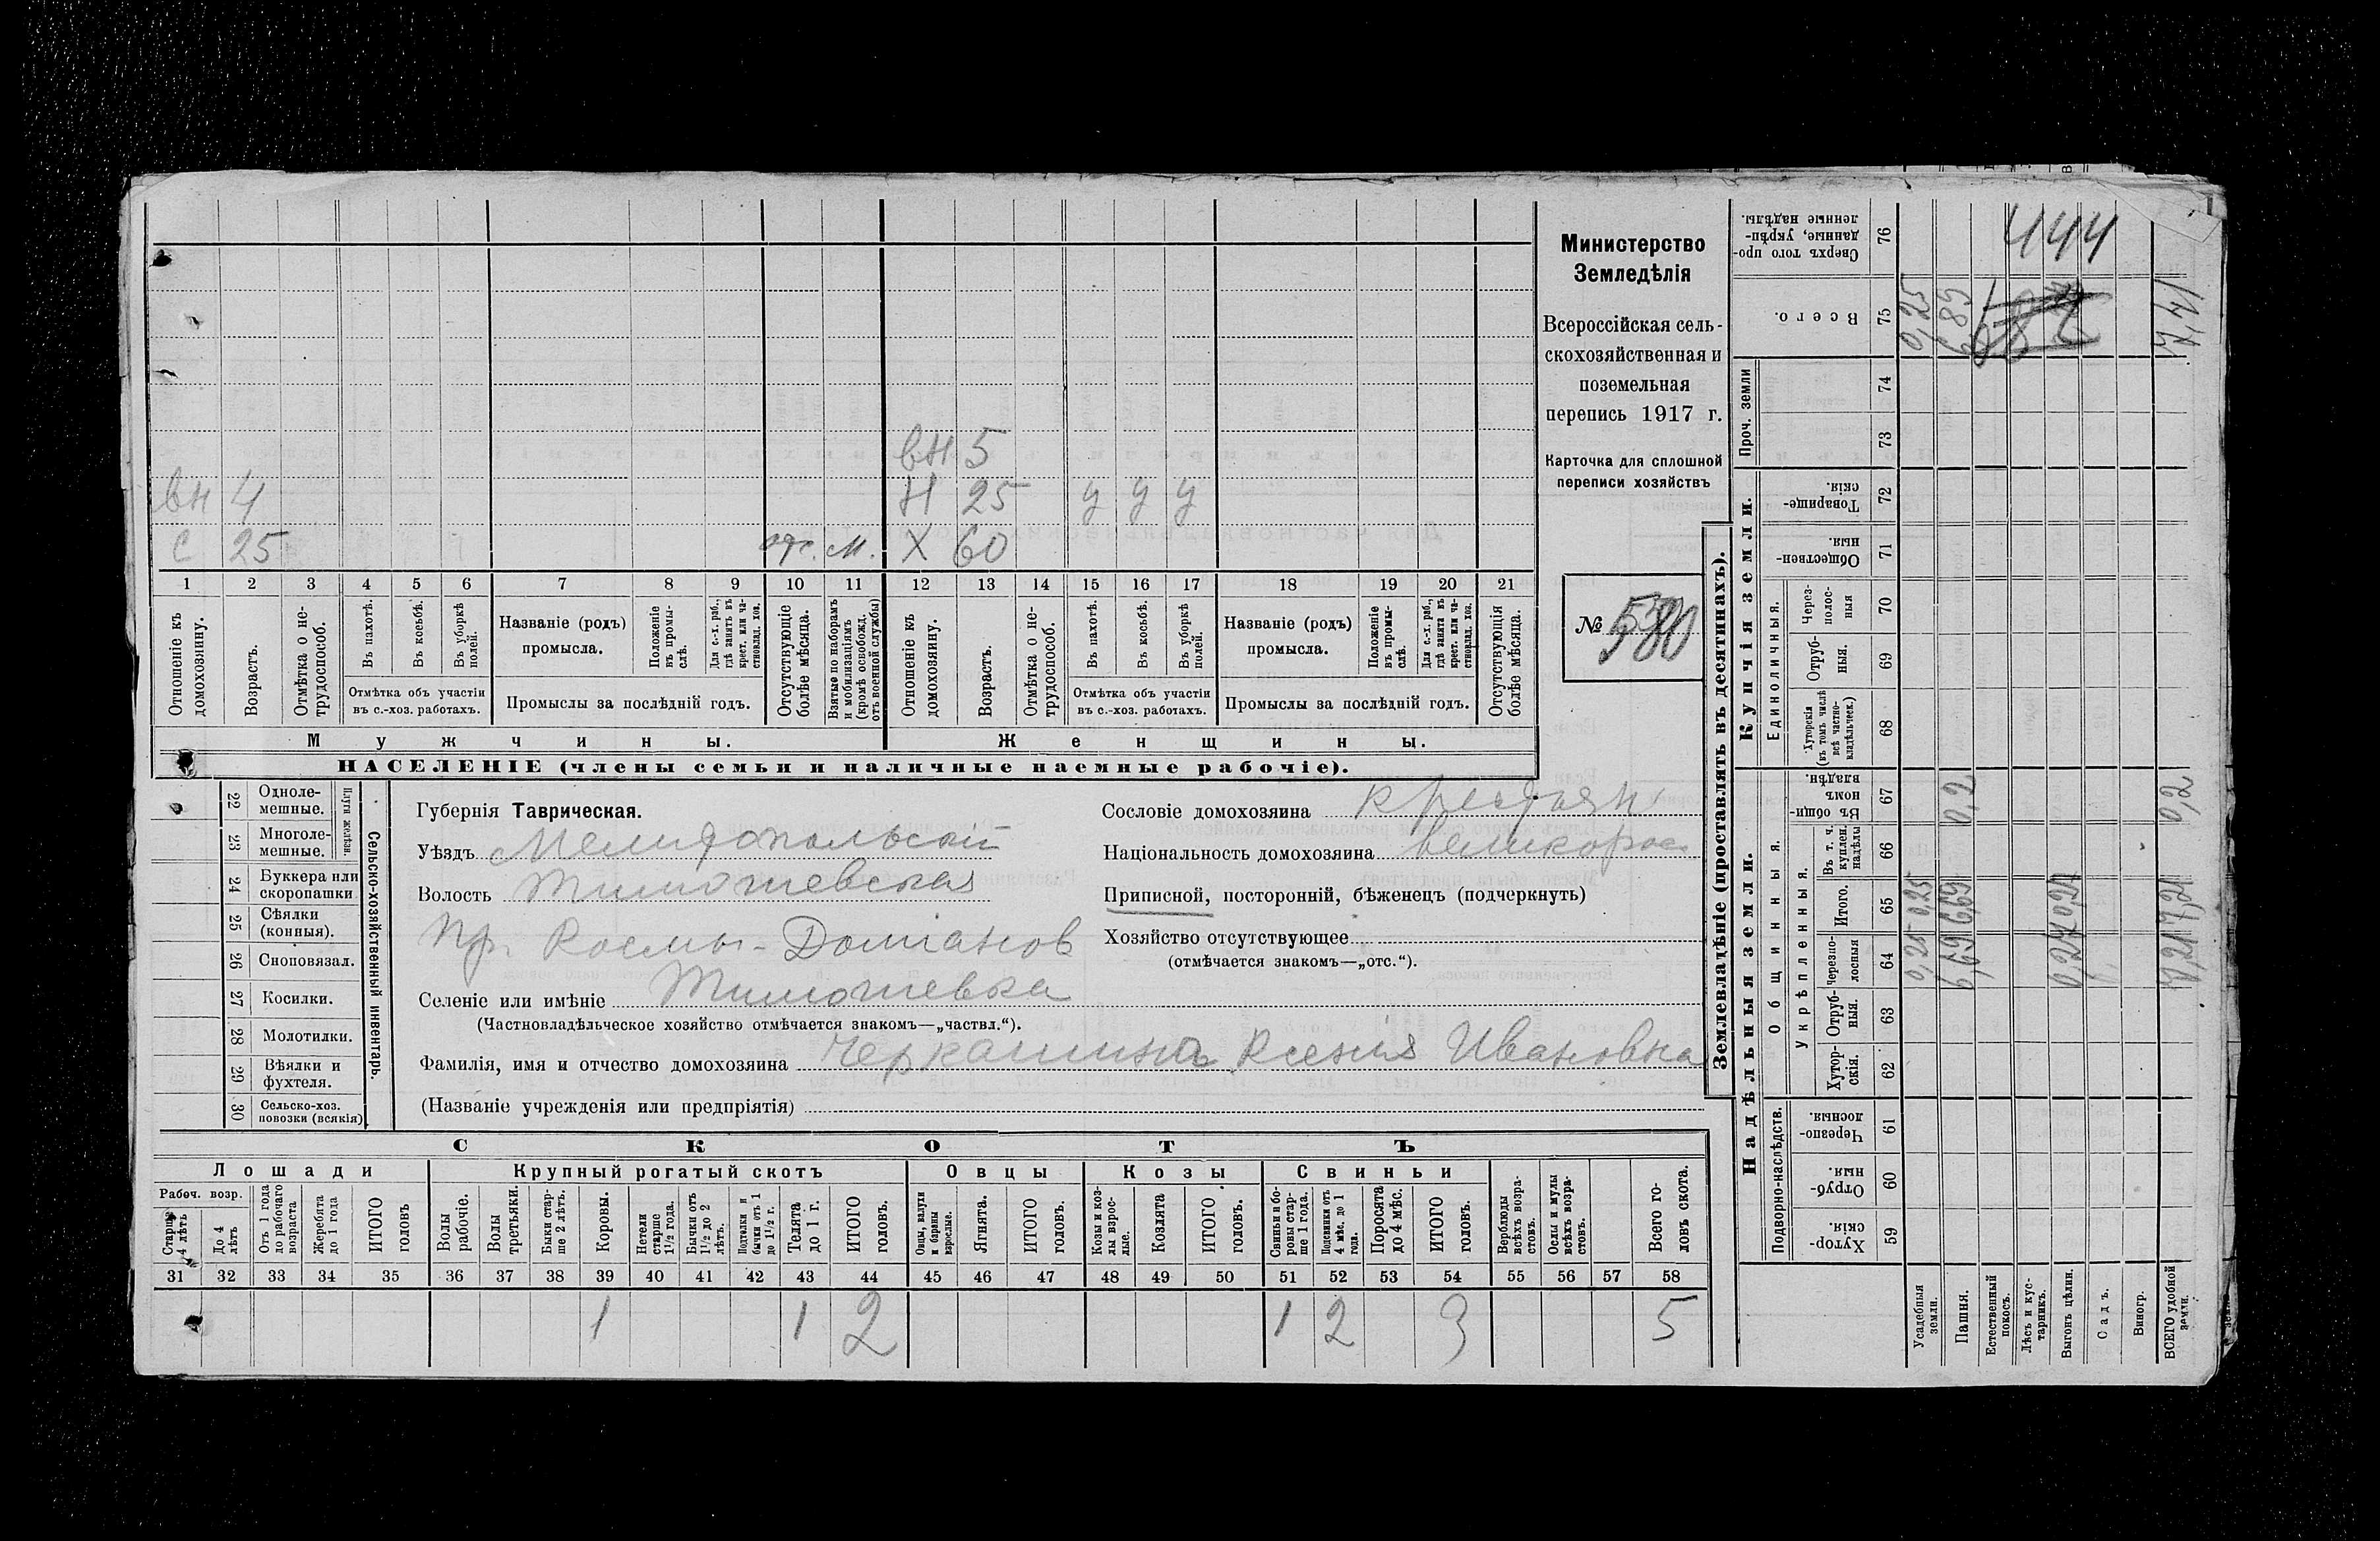 Министерство
Земледѣлія
Всероссійская сель-
скохозяйственная и
поземельная
перепись 1917 г.
Карточка для сплошной
переписи хозяйствъ
№
вн 5
вн 4 Н 25 у у у
с 25 отс. м. Х 60
1 2 3 4 5 6 7 8 9 10 11 12 13 14 15 16 17 18 19 20 21
Отношеніе къ домохозяину.
Возрастъ.
Отмѣтка о не-трудоспособ.
Въ пахотѣ.
Въ косьбѣ.
Въ уборкѣ полей.
Отмѣтка объ участіи
въ с.-хоз. работахъ.
Названіе (родъ)
промысла.
Положеніе въ промы-слѣ.
Для с.-х. раб., гдѣ занятъ въ крест. или ча-стновлад. хоз.
Промыслы за послѣдній годъ.
Отсутствующіе болѣе мѣсяца.
Взятые по наборамъ и мобилизаціямъ (кромѣ освобожд. отъ военной службы)
Отношеніе къ домохозяину.
Возрастъ.
Отмѣтка о не-трудоспособ.
Въ пахотѣ.
Въ косьбѣ.
Въ уборкѣ полей.
Отмѣтка объ участіи
въ с.-хоз. работахъ.
Названіе (родъ)
промысла.
Положеніе въ промы-слѣ.
Для с.-х. раб., гдѣ занята въ крест. или ча-стновлад. хоз.
Промыслы за послѣдній годъ.
Отсутствующія болѣе мѣсяца.
Мужчины. Женщины.
НАСЕЛЕНІЕ (члены семьи и наличные наемные рабочіе).
Сельско-хозяйственный инвентарь.
Плуги желѣзн.
22 Одноле-мешные.
23 Многоле-мешные.
24 Буккера или скоропашки
25 Сѣялки (конныя).
26 Сноповязал.
27 Косилки.
28 Молотилки.
29 Вѣялки и фухтеля.
30 Сельско-хоз. повозки (всякія)
Губернія Таврическая.
Уѣздъ Мелитопольскій
Волость Тимошевская
Пр. Космы-Домианов
Селеніе или имѣніе Тимошевка
(Частновладѣльческое хозяйство отмѣчается знакомъ—„частвл.“).
Фамилія, имя и отчество домохозяина Черкашина Ксенія Ивановна
(Названіе учрежденія или предпріятія)
Сословіе домохозяина крестьян
Національность домохозяина великорос
Приписной, посторонній, бѣженецъ (подчеркнуть)
Хозяйство отсутствующее
(отмѣчается знакомъ—„отс.“).
СКОТЪ
Лошади Крупный рогатый скотъ Овцы Козы Свиньи
Рабоч. возр.
Старше 4 лѣтъ
До 4 лѣтъ
Отъ 1 года до рабочаго возраста
Жеребята до 1 года
ИТОГО головъ
Волы рабочіе.
Волы третьяки.
Быки стар-ше 2 лѣтъ.
Коровы.
Нетели старше 1½ года.
Бычки отъ 1½ до 2 лѣтъ.
Подтелки и бычки отъ 1 до 1½ г.
Телята до 1 г.
ИТОГО головъ.
Овцы, валухи и бараны взрослые.
Ягнята.
ИТОГО головъ.
Козы и коз-лы взрос-лые.
Козлята
ИТОГО головъ.
Свиньи и бо-ровы стар-ше 1 года.
Подсвинки отъ 4 мѣс. до 1 года.
Поросята до 4 мѣс.
ИТОГО головъ.
Верблюды всѣхъ возра-стовъ.
Ослы и мулы всѣхъ возра-стовъ.
Всего го-ловъ скота.
31 32 33 34 35 36 37 38 39 40 41 42 43 44 45 46 47 48 49 50 51 52 53 54 55 56 57 58
1 1 2 1 2 3 5
Землевладѣніе (проставлять въ десятинахъ).
Надѣльныя земли.
Купчія земли.
Проч. земли
Подворно-наслѣдств.
Общинныя.
Укрѣпленныя.
Единоличныя.
Хутор-скія. 59
Отруб-ныя. 60
Черезпо-лосныя. 61
Хутор-скія. 62
Отруб-ныя. 63
Черезпо-лосныя 64
Итого. 65
Въ т. ч. куплен. надѣлы 66
Въ общин-номъ владѣн. 67
Хуторскія (въ томъ числѣ всѣ частно-владѣльческ.) 68
Отруб-ныя. 69
Через-полос-ныя 70
Обществен-ныя. 71
Товарище-скія. 72
73
74
Всего. 75
Сверхъ того про-данные, укрѣп-ленные надѣлы. 76
Усадебныя земли. 0,25 0,25 0,25
Пашня. 6,69 6,69 0,2 6,89
Естественный покосъ.
Лѣсъ и кус-тарникъ.
Выгонъ цѣлин. 0,27 0,27
Садъ.
Виногр.
ВСЕГО удобной земли. 7,21 7,21 0,2 7,41
444